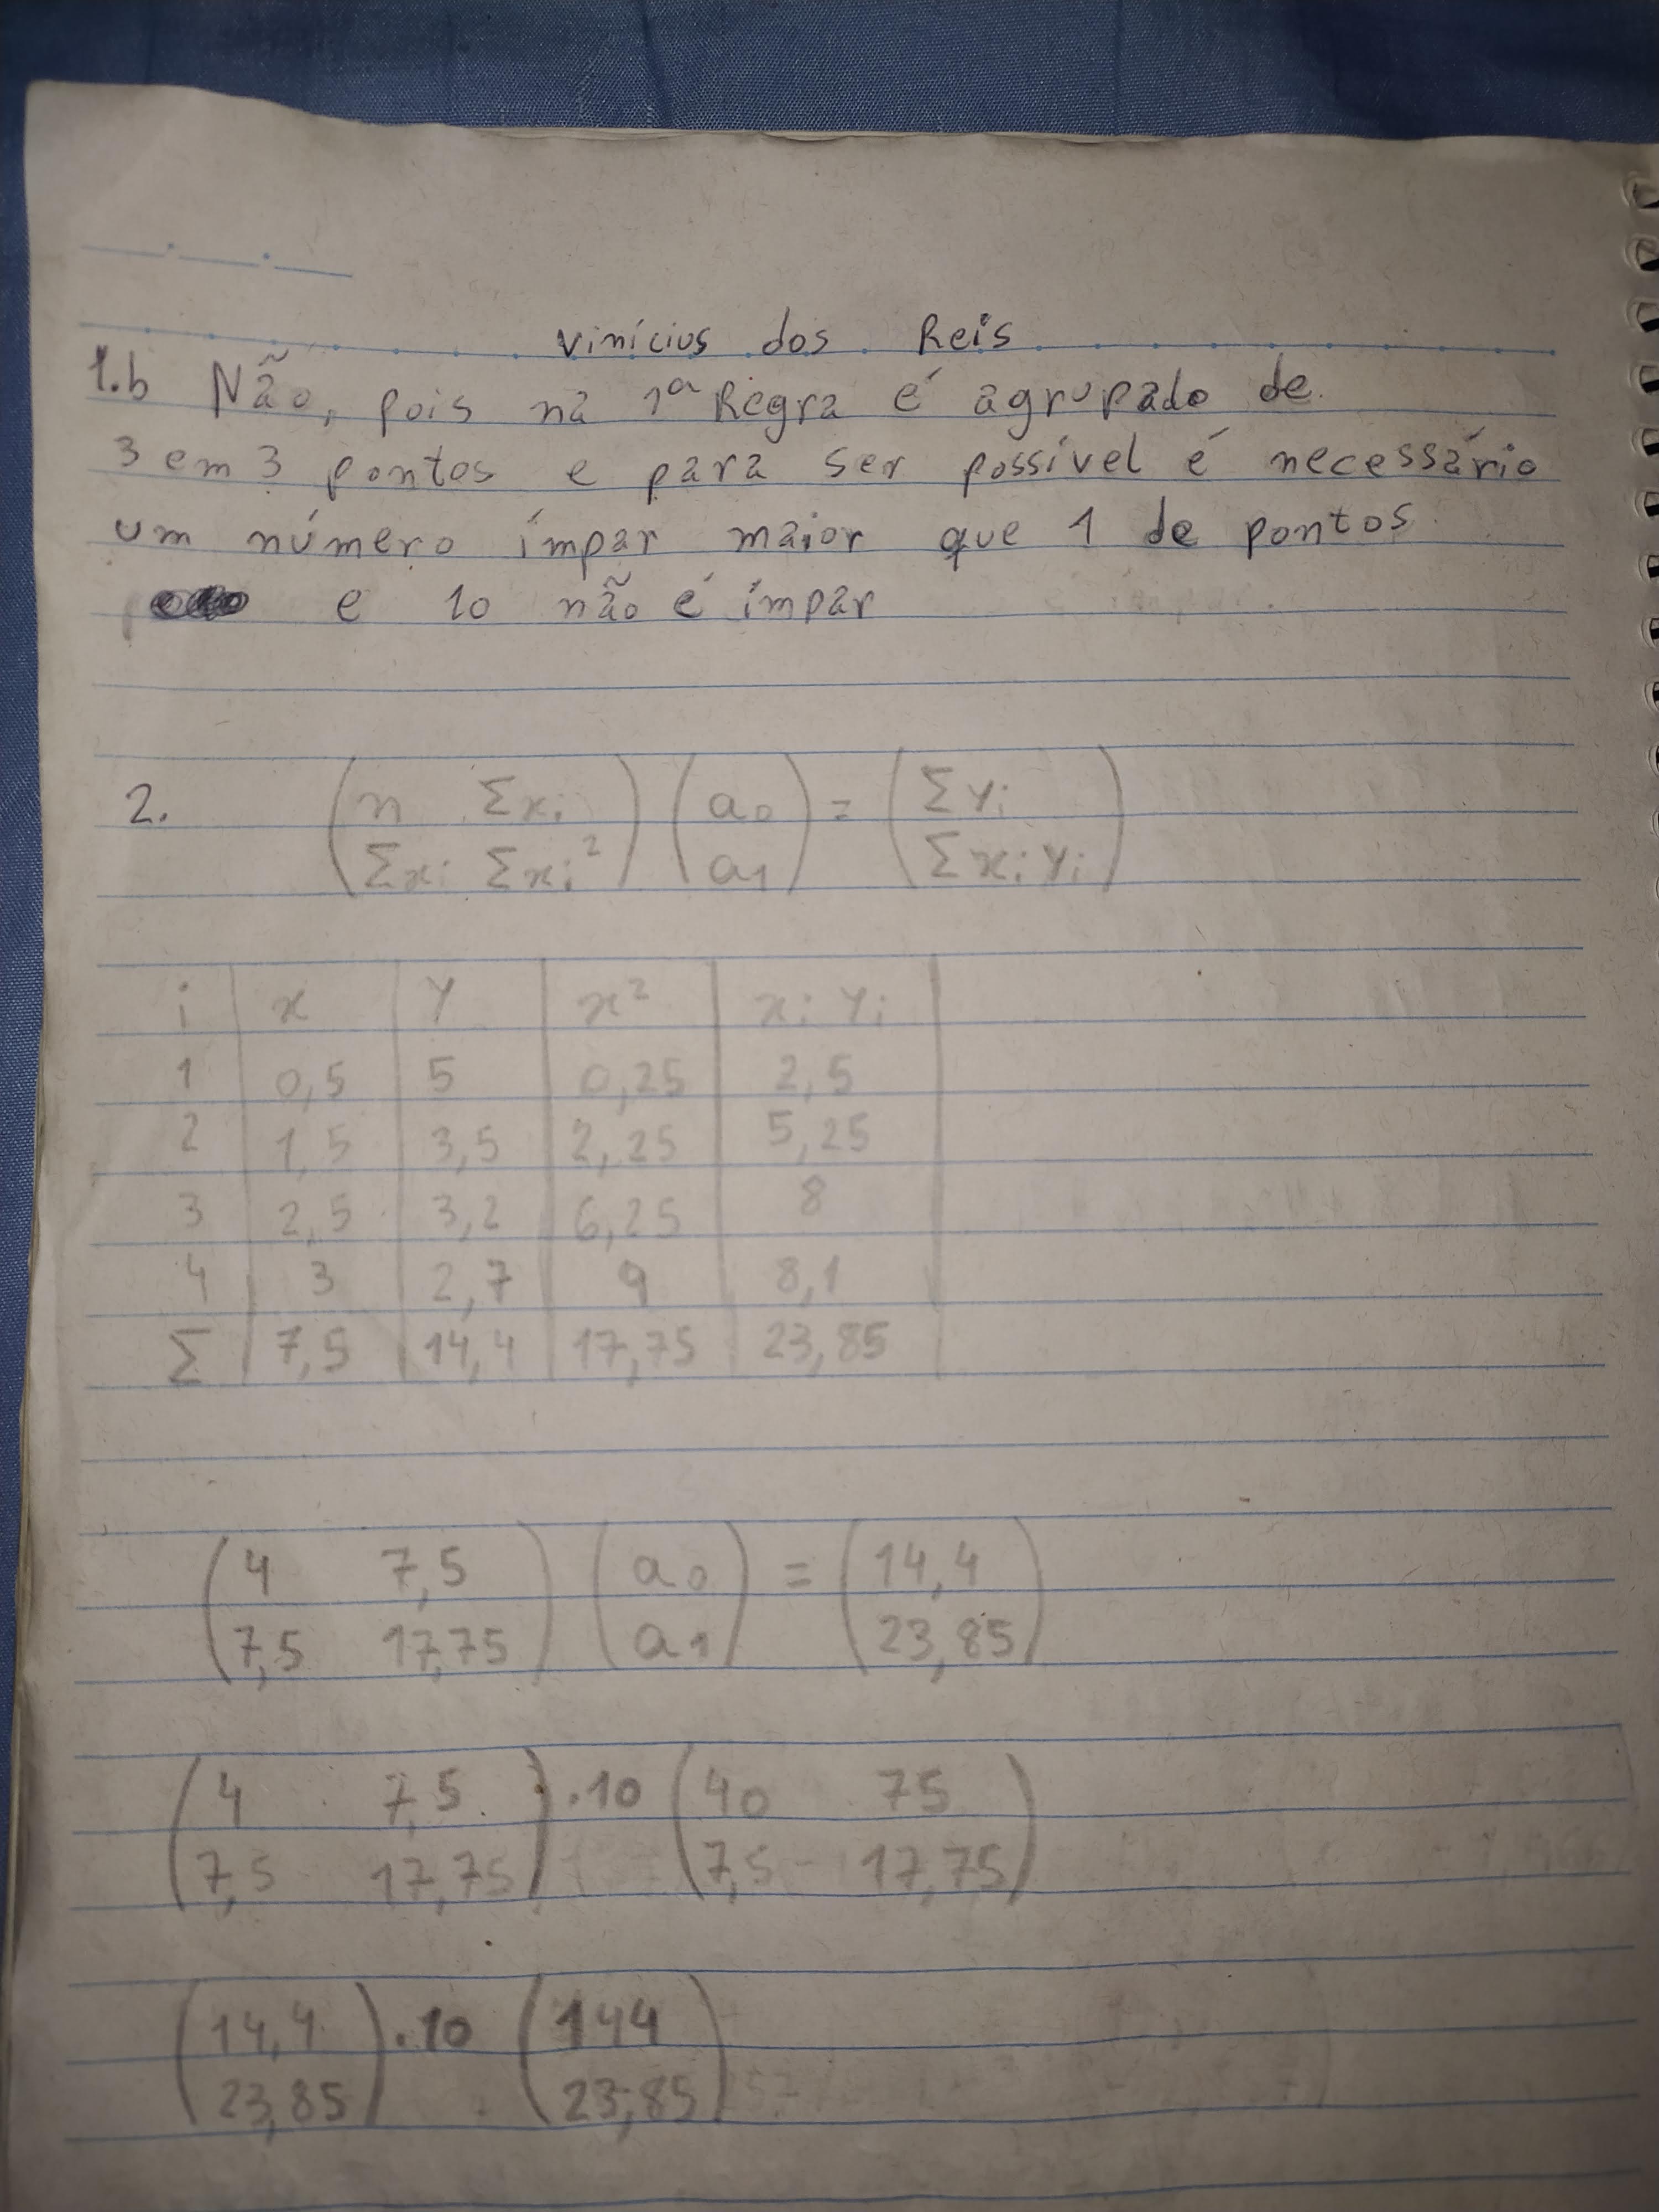 Vinícius dos Reis
1.b Não, pois na 1ª Regra é agrupado de
3 em 3 pontos e para ser possível é necessário
um número ímpar maior que 1 de pontos
e 10 não é ímpar
2. (n Σxi) (a0) = (Σyi)
(Σxi Σxi²) (a1) (Σxiyi)
i x y x² xi yi
1 0,5 5 0,25 2,5
2 1,5 3,5 2,25 5,25
3 2,5 3,2 6,25 8
4 3 2,7 9 8,1
Σ 7,5 14,4 17,75 23,85
(4 7,5) (a0) = (14,4)
(7,5 17,75) (a1) (23,85)
(4 7,5) .10 (40 75)
(7,5 17,75) (7,5 17,75)
(14,4) .10 (144)
(23,85) (23,85)